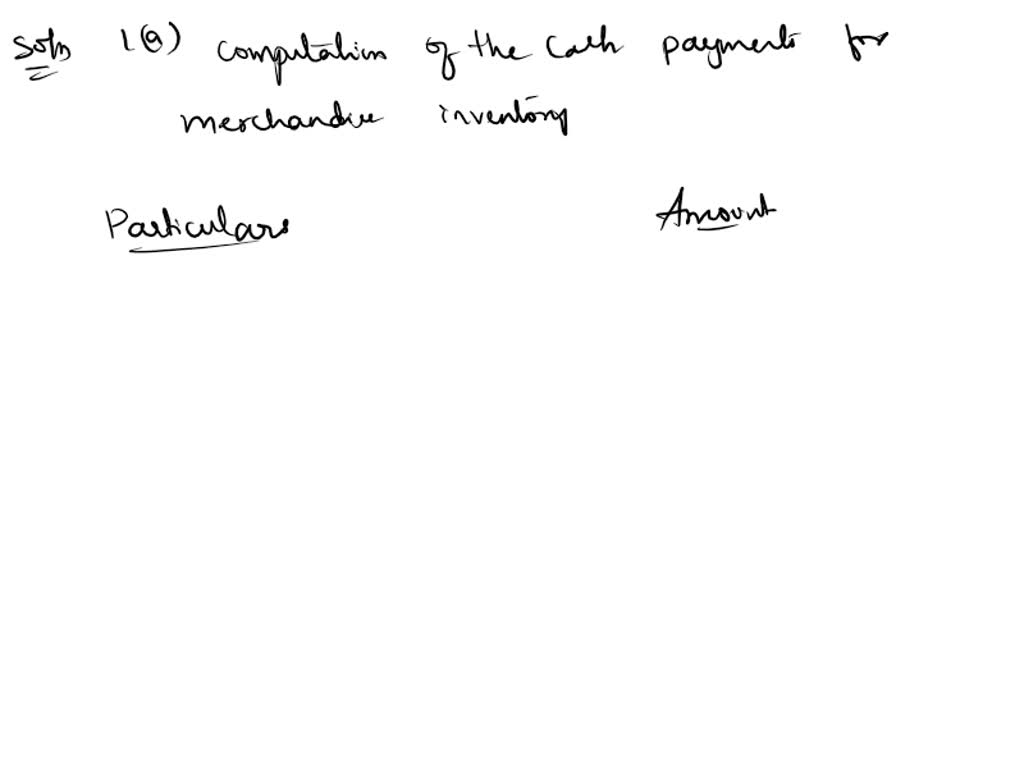 Soln 1(a) computation of the Cash payments for
merchandise inventory
Particulars Amount